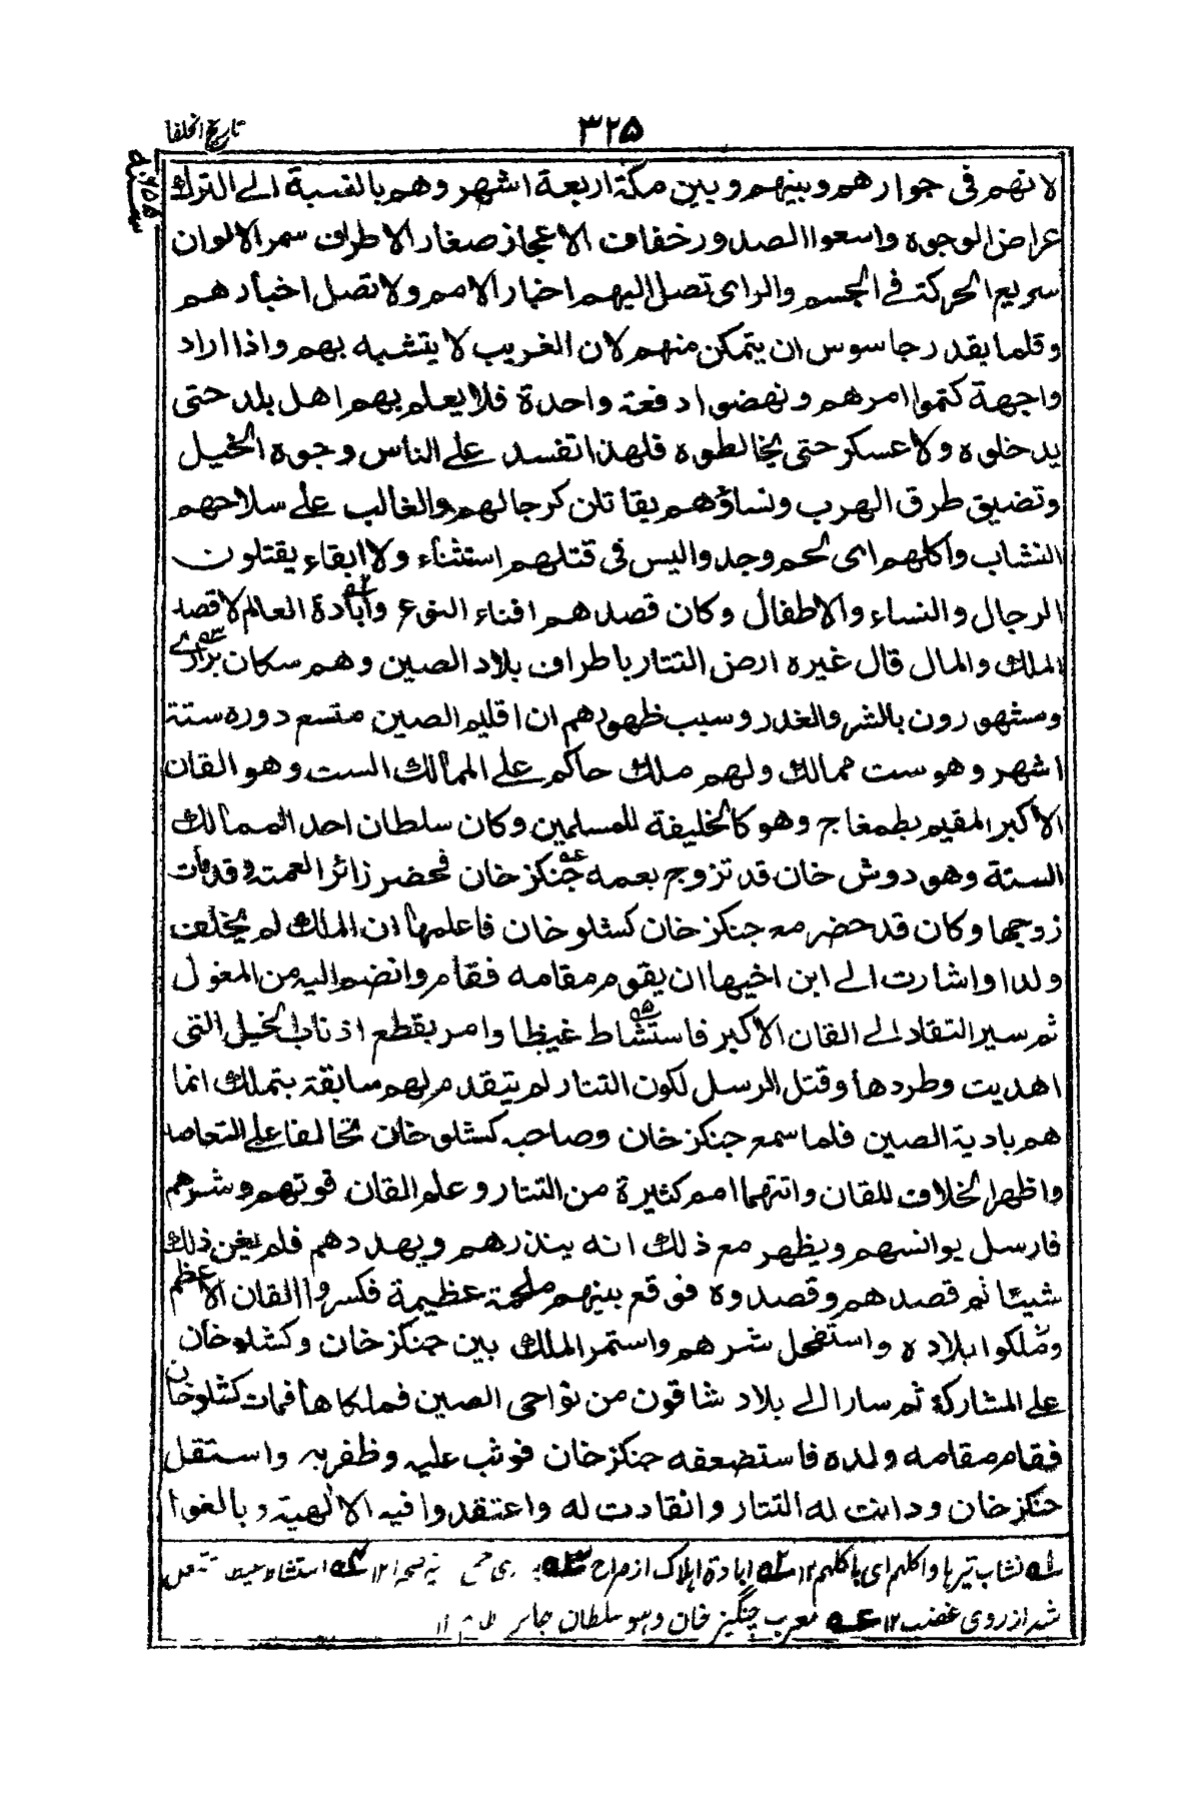 ٣٢۵
تاریخ الخلفا
سنه ٦۵۵
لانهم فى جوارهم وبينهم وبين مكة اربعة اشهر وهم بالنسبة الى الترك
عراض الوجوه واسعوا الصدور خفاف الاعجاز صغار الاطراف سمر الالوان
سريع الحركة فى الجسم والراى تصل اليهم اخبار الامم ولا تصل اخبارهم
وقلما يقدر جاسوس ان يتمكن منهم لان الغريب لا يتشبه بهم واذا اراد
واجهة كتموا امرهم ونهضوا دفعة واحدة فلا يعلم بهم اهل بلد حتى
يدخلوه ولا عسكر حتى يخالطوه فلهذا تفسد على الناس وجوه الخيل
وتضيق طرق الهرب ونساؤهم يقاتلن كرجالهم والغالب على سلاحهم
النشاب واكلهم اى لحم وجد وليس فى قتلهم استثناء ولا ابقاء يقتلون
الرجال والنساء والاطفال وكان قصدهم افناء النوع وابادة العالم لا قصد
الملك والمال قال غيره ارض التتار باطراف بلاد الصين وهم سكان براری
ومشهورون بالشر والغدر وسبب ظهورهم ان اقليم الصين متسع دوره ستة
اشهر وهو ست ممالك ولهم ملك حاكم على الممالك الست وهو القان
الاكبر المقيم بطمغاج وهو كالخليفة للمسلمين وكان سلطان احد الممالك
الستة وهو دوش خان قد تزوج بعمه جنكز خان فحضر زائرا لعمته وقد مات
زوجها وكان قد حضر مع جنكز خان كسشلو خان فاعلمها ان الملك لم يخلف
ولدا واشارت الى ابن اخيها ان يقوم مقامه فقام وانضم اليه من المغول
ثم سير التقاد الى القان الاكبر فاستشاط غيظا وامر بقطع اذناب الخيل التى
اهديت وطردها وقتل الرسل لكون التتار لم يتقدم لهم سابقة بتملك انما
هم بادية الصين فلما سمع جنكز خان وصاحبه كسشلو خان تحالفا على التعاضد
واظهرا الخلاف للقان واتتهما امم كثيرة من التتار وعلم القان قوتهم وشرهم
فارسل يوانسهم ويظهر مع ذلك انه ينذرهم ويهددهم فلم يغن ذلك
شيئا ثم قصدهم وقصدوه فوقع بينهم ملحمة عظيمة فكسروا القان الاعظم
وملكوا بلاده واستفحل شرهم واستمر الملك بين جنكز خان وكشلو خان
على المشاركة ثم سارا الى بلاد شاقون من نواحى الصين فملكاها فمات كشلو خان
فقام مقامه ولده فاستضعفه جنكز خان فوثب عليه وظفر به واستقل
جنكز خان ودانت له التتار وانقادت له واعتقدوا فيه الالهية وبالغوا
له نشاب تیرها واکلهم ای ماکلهم ١٢ ٢ه ابادة اہلاک از صراح ٣ه استشاط
شد از روی غضب ١٢ معرب چنگیز خان وہو سلطان